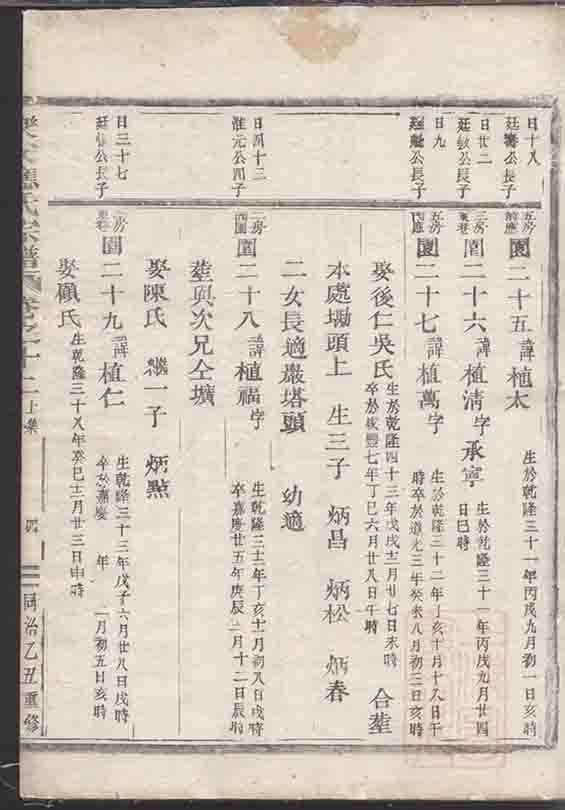 日十八
廷壽公長子
五房
前應
園二十五諱植太
生於乾隆三十一年丙戌九月初一日亥時
日廿二
廷敏公長子
三房
東巷
園二十六諱植清字承寧
生於乾隆三十一年丙戌九月廿四
日巳時
日九
公長子
五房
應
園二十七諱植萬字
生於乾隆三十二年丁亥十月十八日午
時卒於道光三年癸未八月初三日亥時
娶後仁吳氏
生於乾隆四十三年戊戌十二月廿七日未時
卒於咸豐七年丁巳六月廿八日午時
合塟
本處墈頭上 生三子 炳昌 炳松 炳春
二女長適嚴塔頭 幼適
日四十二
淮元公四子
二房
園二十八諱植福字
生乾隆三十二年丁亥十一月初八日戌時
卒嘉慶廿五年庚辰二月十二日辰時
塟與次兄仝壙
娶陳氏 繼一子 炳㸃
日三十七
廷 公長子
房
東巷
園二十九諱植仁
生乾隆三十三年戊子六月廿八日戌時
卒於嘉慶 年 一月初五日亥時
娶顧氏
生乾隆三十八年癸巳十二月廿三日申時
應氏宗譜
卷之十二上集
四
同治乙丑重修